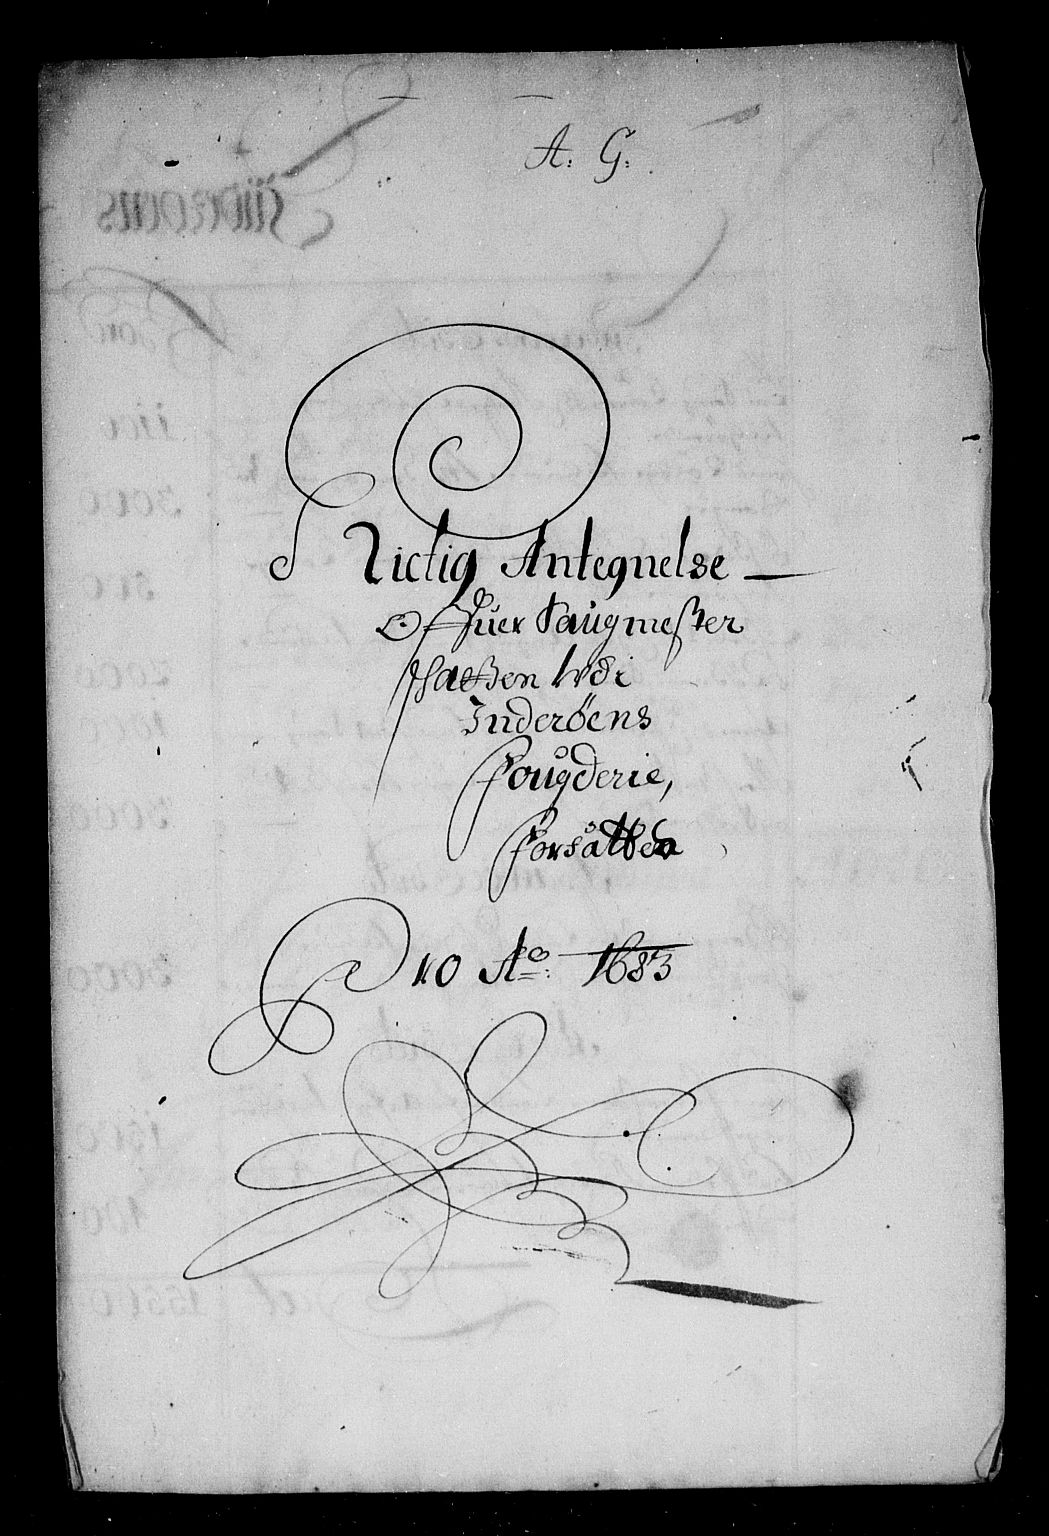 A: G:
Rictig Antegnelse
Offuer Saugmester
Skatten Udi
Inderöens
Fougderie,
Forfatted
Pro Ao: 1683